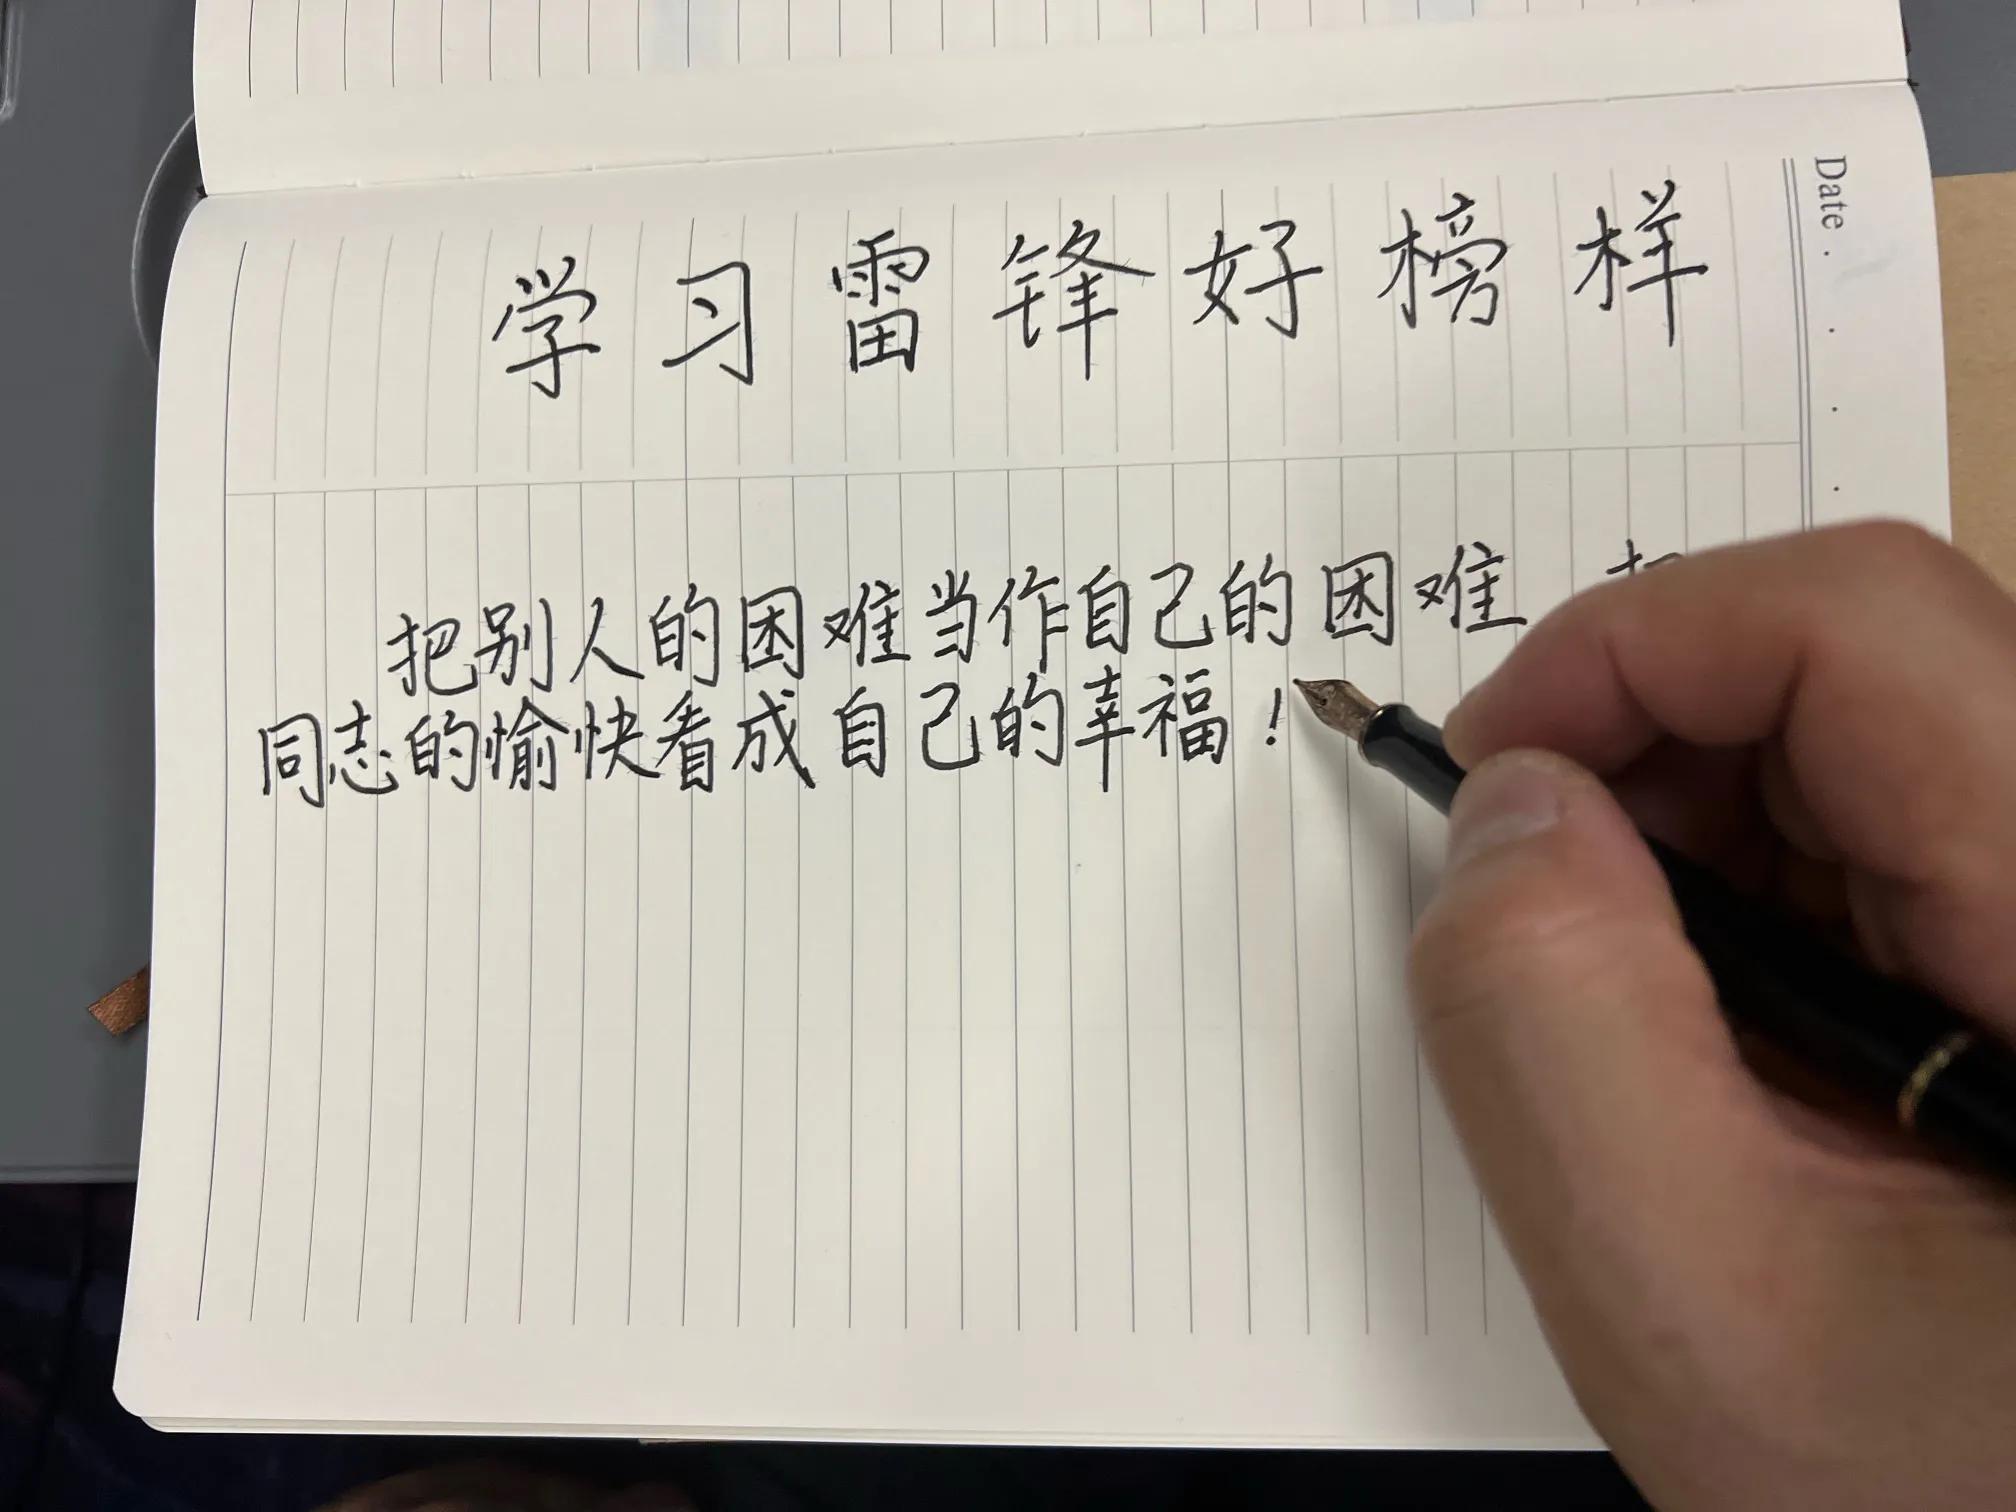 学习雷锋好榜样
把别人的困难当作自己的困难
同志的愉快看成自己的幸福！
Date